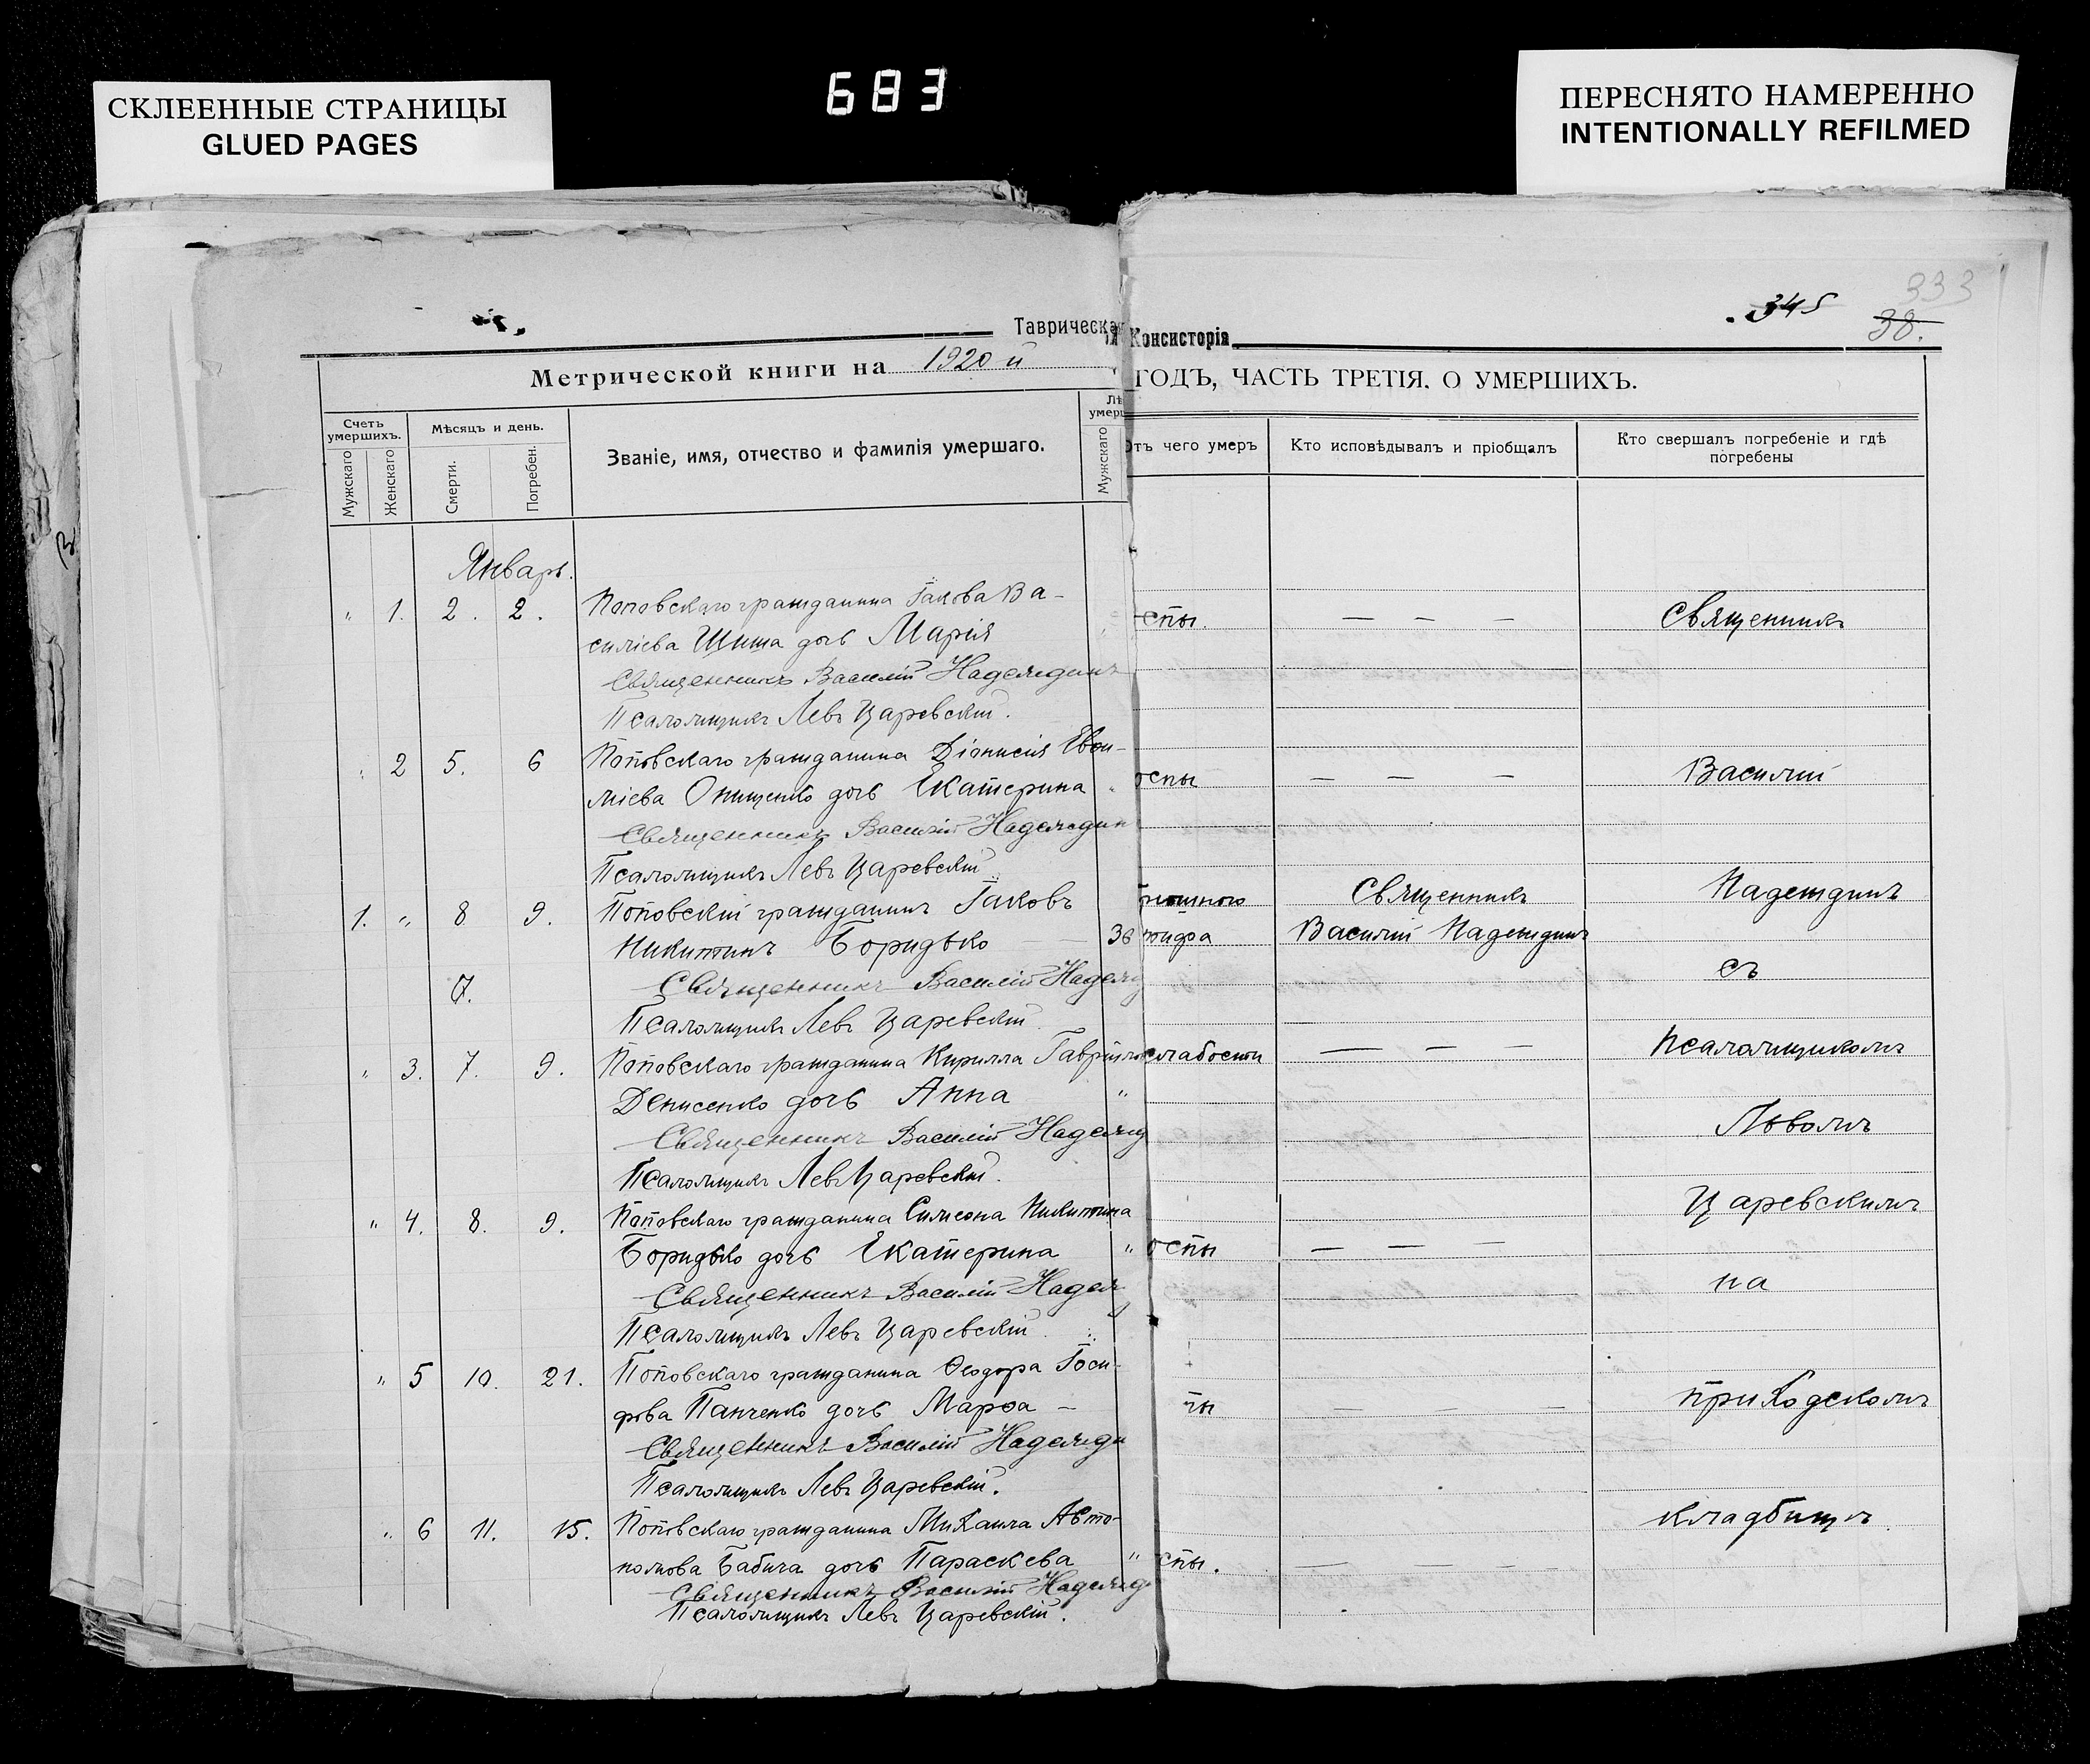 СКЛЕЕННЫЕ СТРАНИЦЫ
GLUED PAGES
683
ПЕРЕСНЯТО НАМЕРЕННО
INTENTIONALLY REFILMED
333
345
38.
Таврическая Консисторія
Метрической книги на 1920 й ГОДЪ, ЧАСТЬ ТРЕТІЯ. О УМЕРШИХЪ.
Счетъ умершихъ.
Мужскаго
Женскаго
Мѣсяцъ и день.
Смерти.
Погребен.
Званіе, имя, отчество и фамилія умершаго.
Лѣ
умерш
Мужскаго
Отъ чего умеръ
Кто исповѣдывалъ и пріобщалъ
Кто свершалъ погребеніе и гдѣ
погребены
Январь.
" 1. 2. 2. Поповскаго гражданина Іакова Ва-
силіева Шиша дочь Марія " спы. — — — Священникъ
Священникъ Василій Надеждинъ
Псаломщикъ Левъ Царевскій.
" 2 5. 6 Поповскаго гражданина Діонисія Евѳи-
міева Онищенко дочь Екатерина " оспы — — — Василій
Священникъ Василій Надеждин
Псаломщикъ Левъ Царевскій
1. " 8 9. Поповскій гражданинъ Іаковъ Священникъ Надеждинъ
Никитинъ Боридько — 36 тифа Василій Надеждинъ
7. Священникъ Василій Надежд съ
Псаломщикъ Левъ Царевскій.
" 3. 7. 9. Поповскаго гражданина Кирилла Гавріило слабости — — — псаломщикомъ
Денисенко дочь Анна "
Священникъ Василій Надежд Львомъ
Псаломщикъ Левъ Царевскій.
" 4. 8. 9. Поповскаго гражданина Симеона Никитина Царевскимъ
Боридько дочь Екатерина " оспы — — —
Священникъ Василій Надеж на
Псаломщикъ Левъ Царевскій.
" 5 10. 21. Поповскаго гражданина Ѳеодора Іоси-
фова Панченко дочь Марѳа — пы — — — приходскомъ
Священникъ Василій Надежди
Псаломщикъ Левъ Царевскій.
" 6 11. 15. Поповскаго гражданина Михаила Авто- кладбищѣ.
номова Бабича дочь Параскева " спы. — — —
Священникъ Василій Надежд
Псаломщикъ Левъ Царевскій.